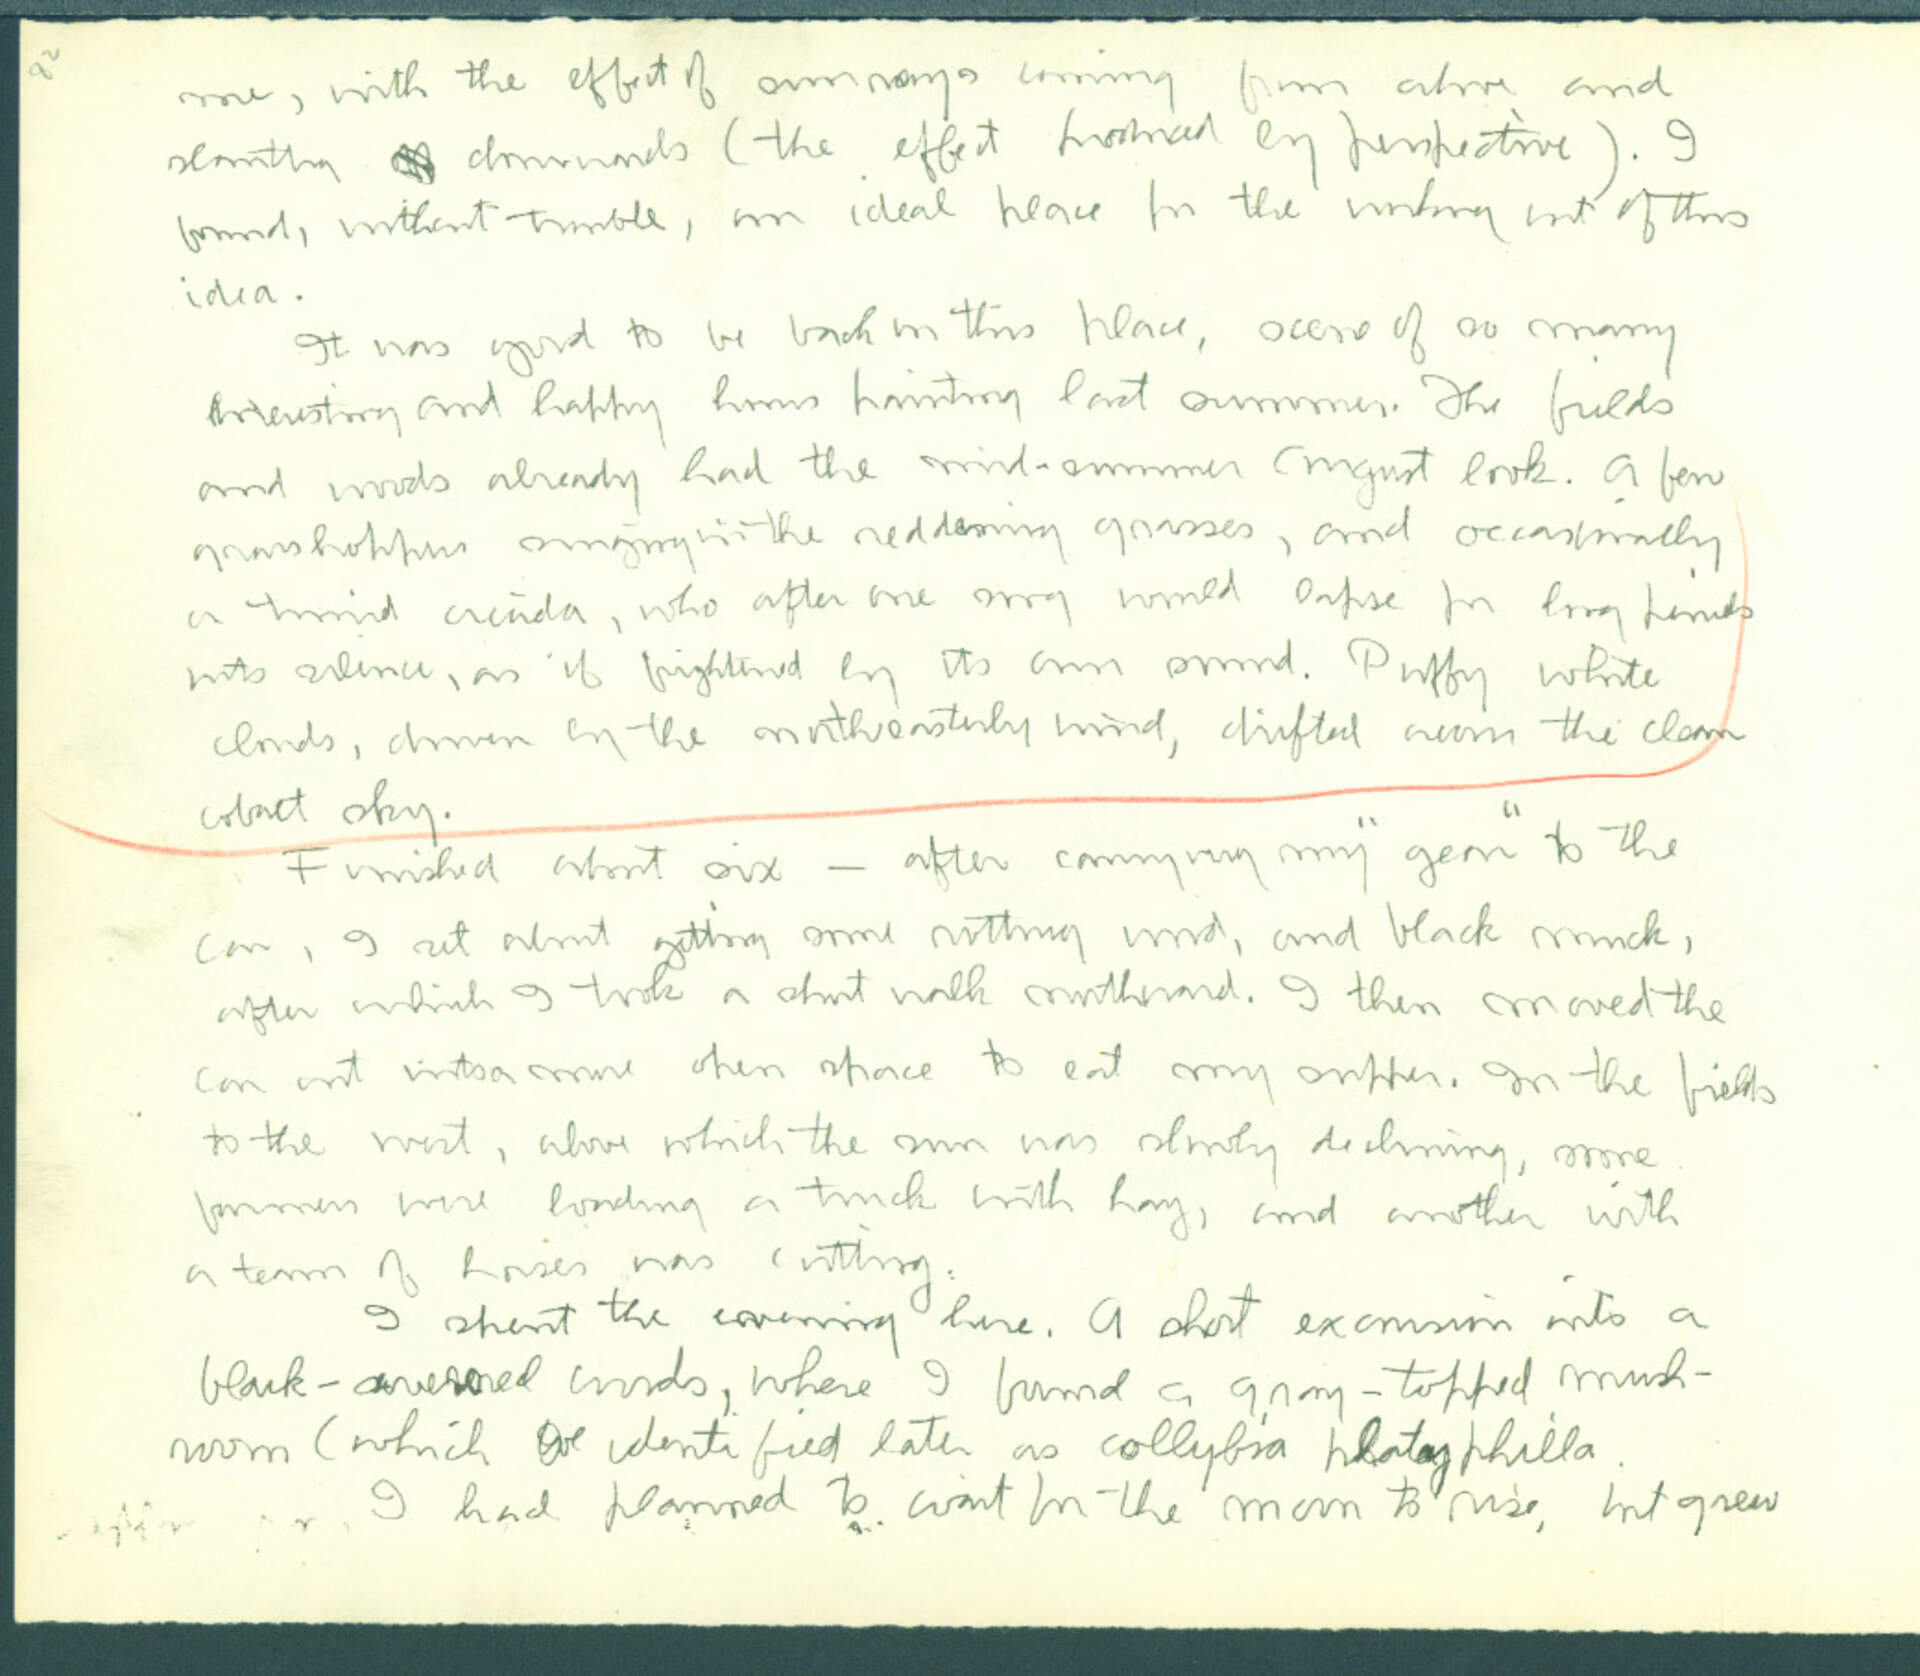 82
me, with the effect of sunrays coming from above and
slanting downwards (the effect produced by perspective). I
found, without trouble, an ideal place for the working out of this
idea.
It was good to be back in this place, scene of so many
interesting and happy hours painting last summer. The fields
and woods already had the mid-summer August look. A few
grasshoppers singing in the reddening grasses, and occasionally
a timid cicada, who after one song would lapse for long periods
into silence, as if frightened by its own sound. Puffy white
clouds, driven by the northeasterly wind, drifted across the clean
cobalt sky.
Finished about six — after carrying my "gear" to the
car, I set about getting some rotting wood, and black muck,
after which I took a short walk northward. I then moved the
car out into a more open space to eat my supper. In the fields
to the west, above which the sun was slowly declining, some
farmers were loading a truck with hay, and another with
a team of horses was cutting.
I spent the evening here. A short excursion into a
black- woods, where I found a gray-topped mush-
room (which we identified later as collybia platyphilla.
I had planned to wait for the moon to rise, but grew